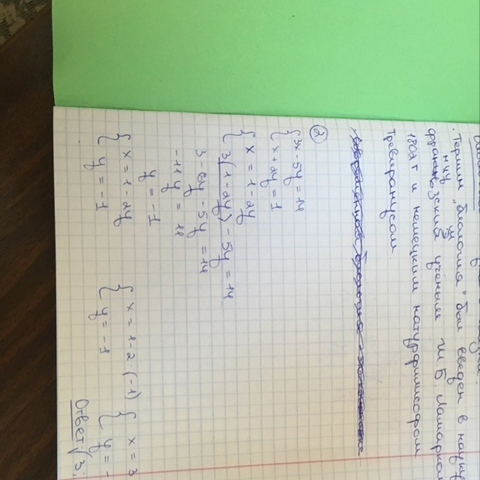 Термин "биология" был введен в науку
французский учёным Ж Б Ламарком
1802 г и немецким натурфилософом
Тревиранусом.
②
{ 3x - 5y = 14
{ x + 2y = 1
{ x = 1 - 2y
{ 3(1 - 2y) - 5y = 14
3 - 6y - 5y = 14
-11y = 11
y = -1
{ x = 1 - 2y { x = 1 - 2 · (-1) { x = 3
{ y = -1 { y = -1 { y = -
Ответ: (3,